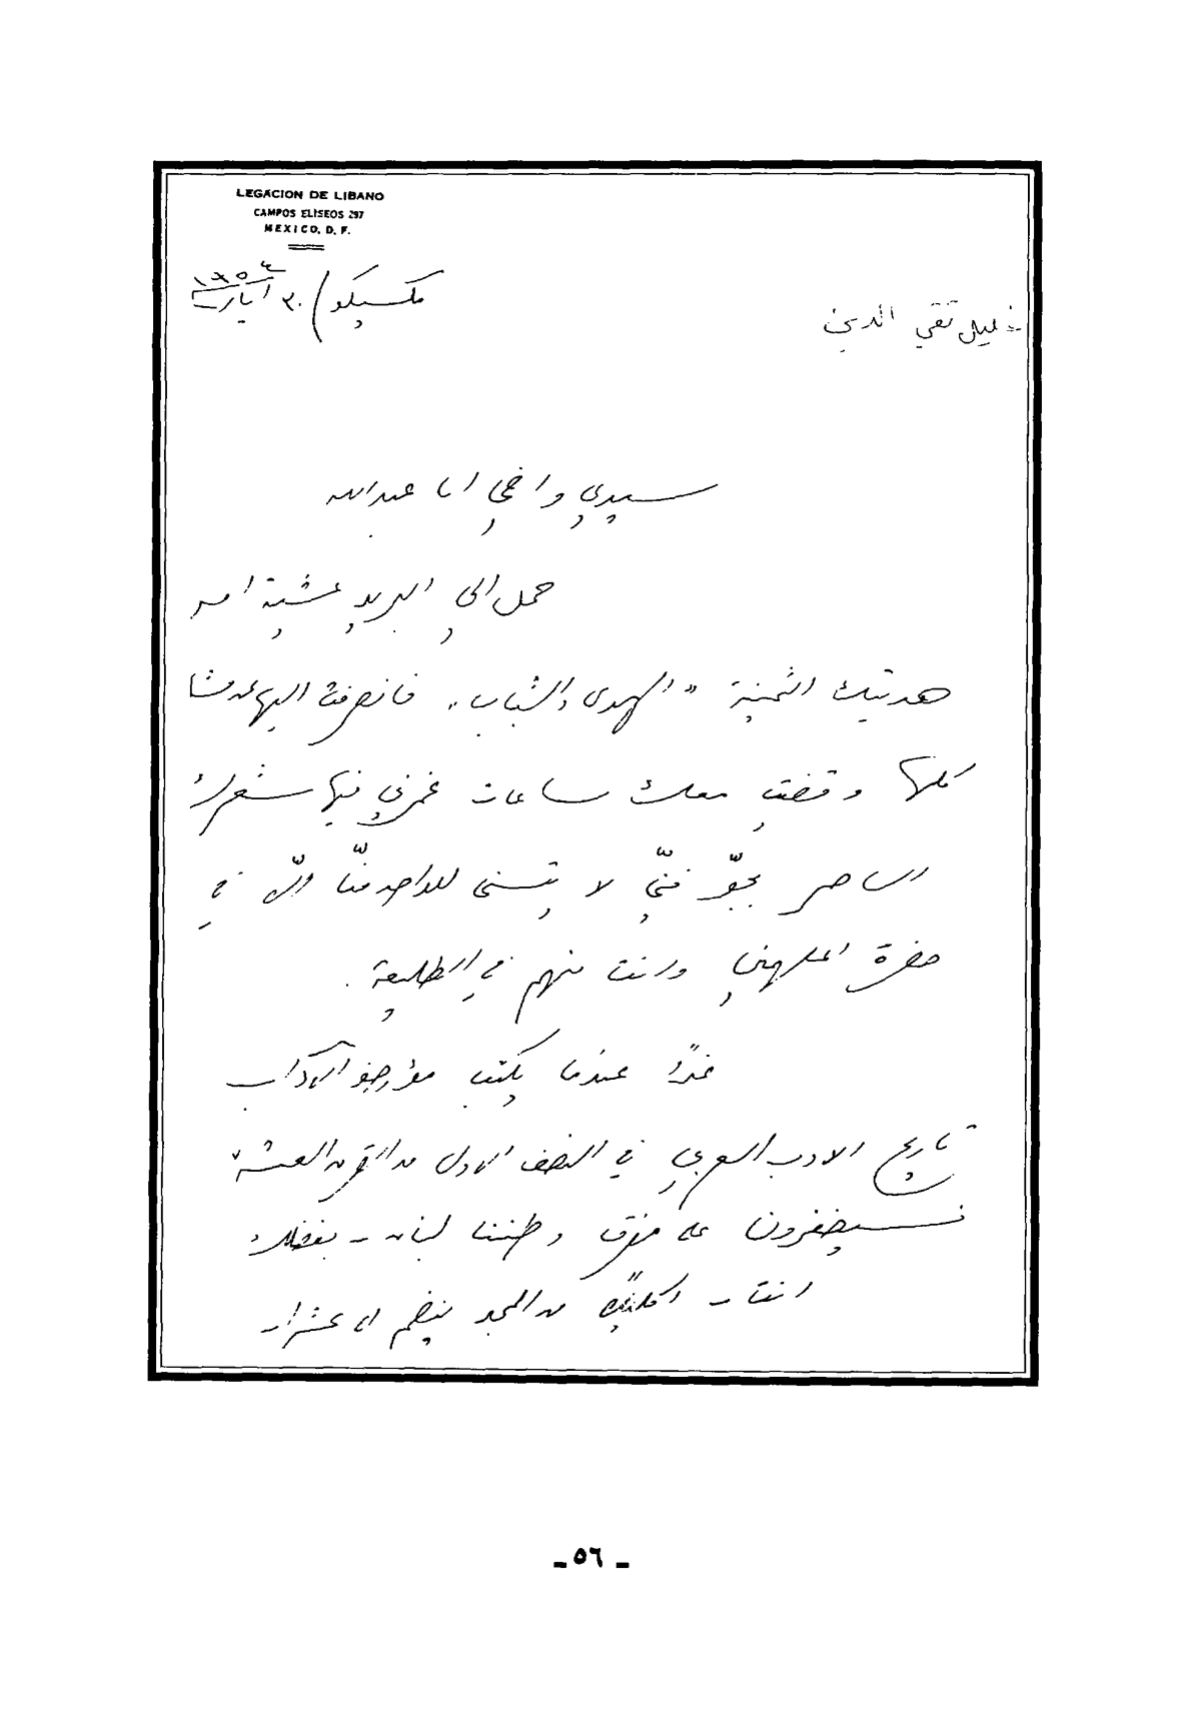 LEGACION DE LIBANO
CAMPOS ELISEOS 297
MEXICO, D. F.
مكسيكو / ٣٠ أيار ١٩٥٤
خليل تقي الدين
سيدي واخي ابا عبدالله
حمل الي البريد عشية امس
هديتك الثمينة "الهوى والشباب" فانصرفت اليها
كلها وقضيت معك ساعات غمرني فيها شعرك
الساحر بجوّ فنيّ لا يتسنى للواحد منّا الّا في
حضرة الملهمين وانت منهم في الطليعة .
غداً عندما يكتب مؤرخو الآداب
تاريخ الادب العربي في النصف الاول من القرن العشرين
فسيضفرون على مفرق وطننا لبنان - بفضلك
انت - اكليلاً من المجد ينضم الى عشرات
- ٥٦ -